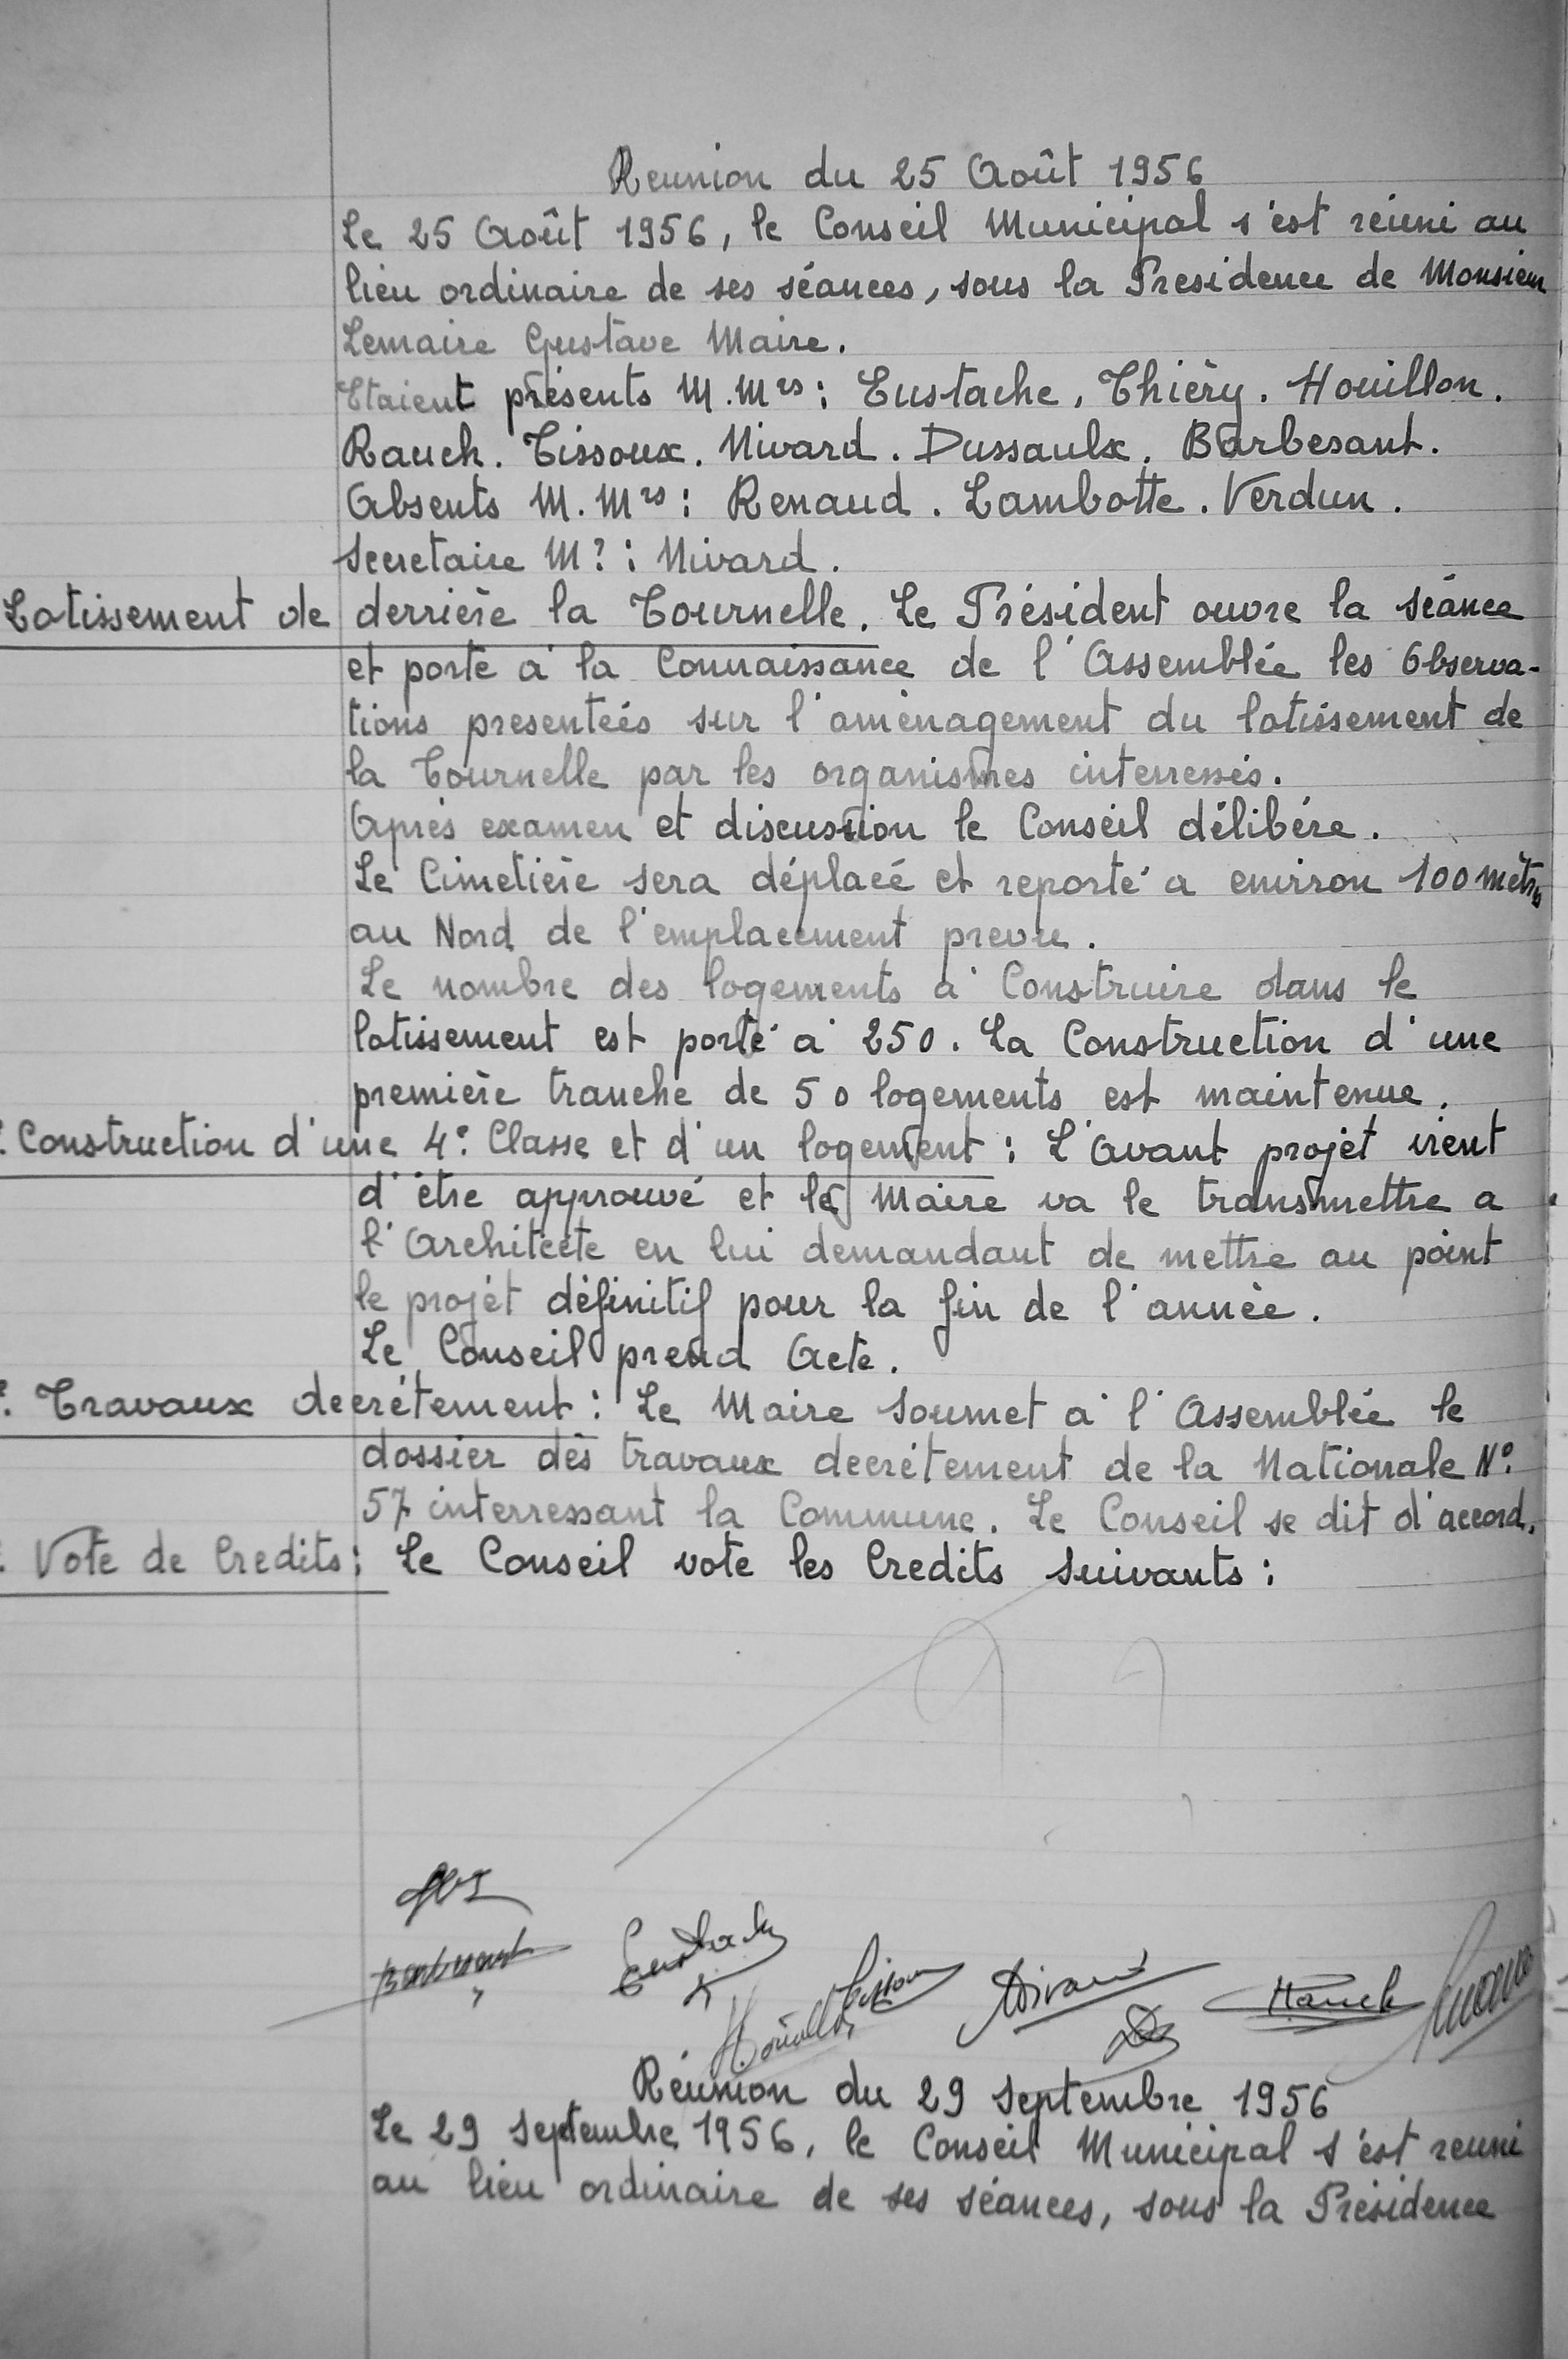 Reunion du 25 Août 1956
Le 25 Août 1956, le Conseil Municipal s'est réuni au
lieu ordinaire de ses séances, sous la Presidence de Monsieur
Lemaire Gustave Maire.
Etaient présents M.Mrs : Eustache, Thièry. Houillon.
Rauch. Tissoux. Nivard. Dussaulx. Barbesant.
Absents M.Mrs : Renaud. Lambotte. Verdun.
Secretaire M? : Nivard.
Lotissement de derrière la Tournelle. Le Président ouvre la séance
et porte à la Connaissance de l'Assemblée les Observa-
tions presenteés sur l'aménagement du lotissement de
la Tournelle par les organismes interressés.
Après examen et discussion le Conseil délibére.
Le Cimetière sera déplacé et reporté a environ 100 mètres
au Nord de l'emplacement prevu.
Le nombre des logements à Construire dans le
lotissement est porté à 250. La Construction d'une
première tranche de 50 logements est maintenue.
Construction d'une 4e. Classe et d'un logement : L'avant projet vient
d'être approuvé et le Maire va le transmettre a
l'Architecte en lui demandant de mettre au point
le projet définitif pour la fin de l'année.
Le Conseil prend Acte.
Travaux decrétement : Le Maire Soumet à l'Assemblée le
dossier des travaux decrétement de la Nationale N°.
57 interressant la Commune. Le Conseil se dit d'accord.
Vote de Credits : Le Conseil vote les Credits Suivants :
Barbesant
Eustache
Tissoux
Nivard
Rauch
Houillon
Réunion du 29 Septembre 1956
Le 29 Septembre 1956, le Conseil Municipal s'est reuni
au lieu ordinaire de ses séances, sous la Présidence